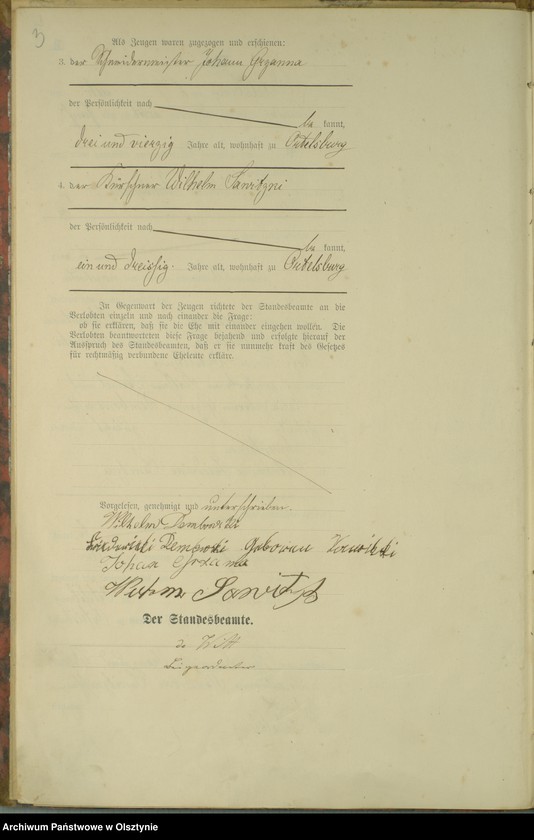 3
Als Zeugen waren zugezogen und erschienen:
3. der Schneidermeister Johann Grzanna
der Persönlichkeit nach
be kannt,
drei und vierzig Jahre alt, wohnhaft zu Ortelsburg
4. der Kürschner Wilhelm
der Persönlichkeit nach
be kannt,
ein und dreissig Jahre alt, wohnhaft zu Ortelsburg
In Gegenwart der Zeugen richtete der Standesbeamte an die
Verlobten einzeln und nach einander die Frage:
ob sie erklären, daß sie die Ehe mit einander eingehen wollen. Die
Verlobten beantworteten diese Frage bejahend und erfolgte hierauf der
Ausspruch des Standesbeamten, daß er sie nunmehr kraft des Gesetzes
für rechtmäßig verbundene Eheleute erkläre.
Vorgelesen, genehmigt und unterschrieben.
Wilhelm Dembowski
Dembowski geborene
Johann Grzanna
Der Standesbeamte.
Archiwum Państwowe w Olsztynie